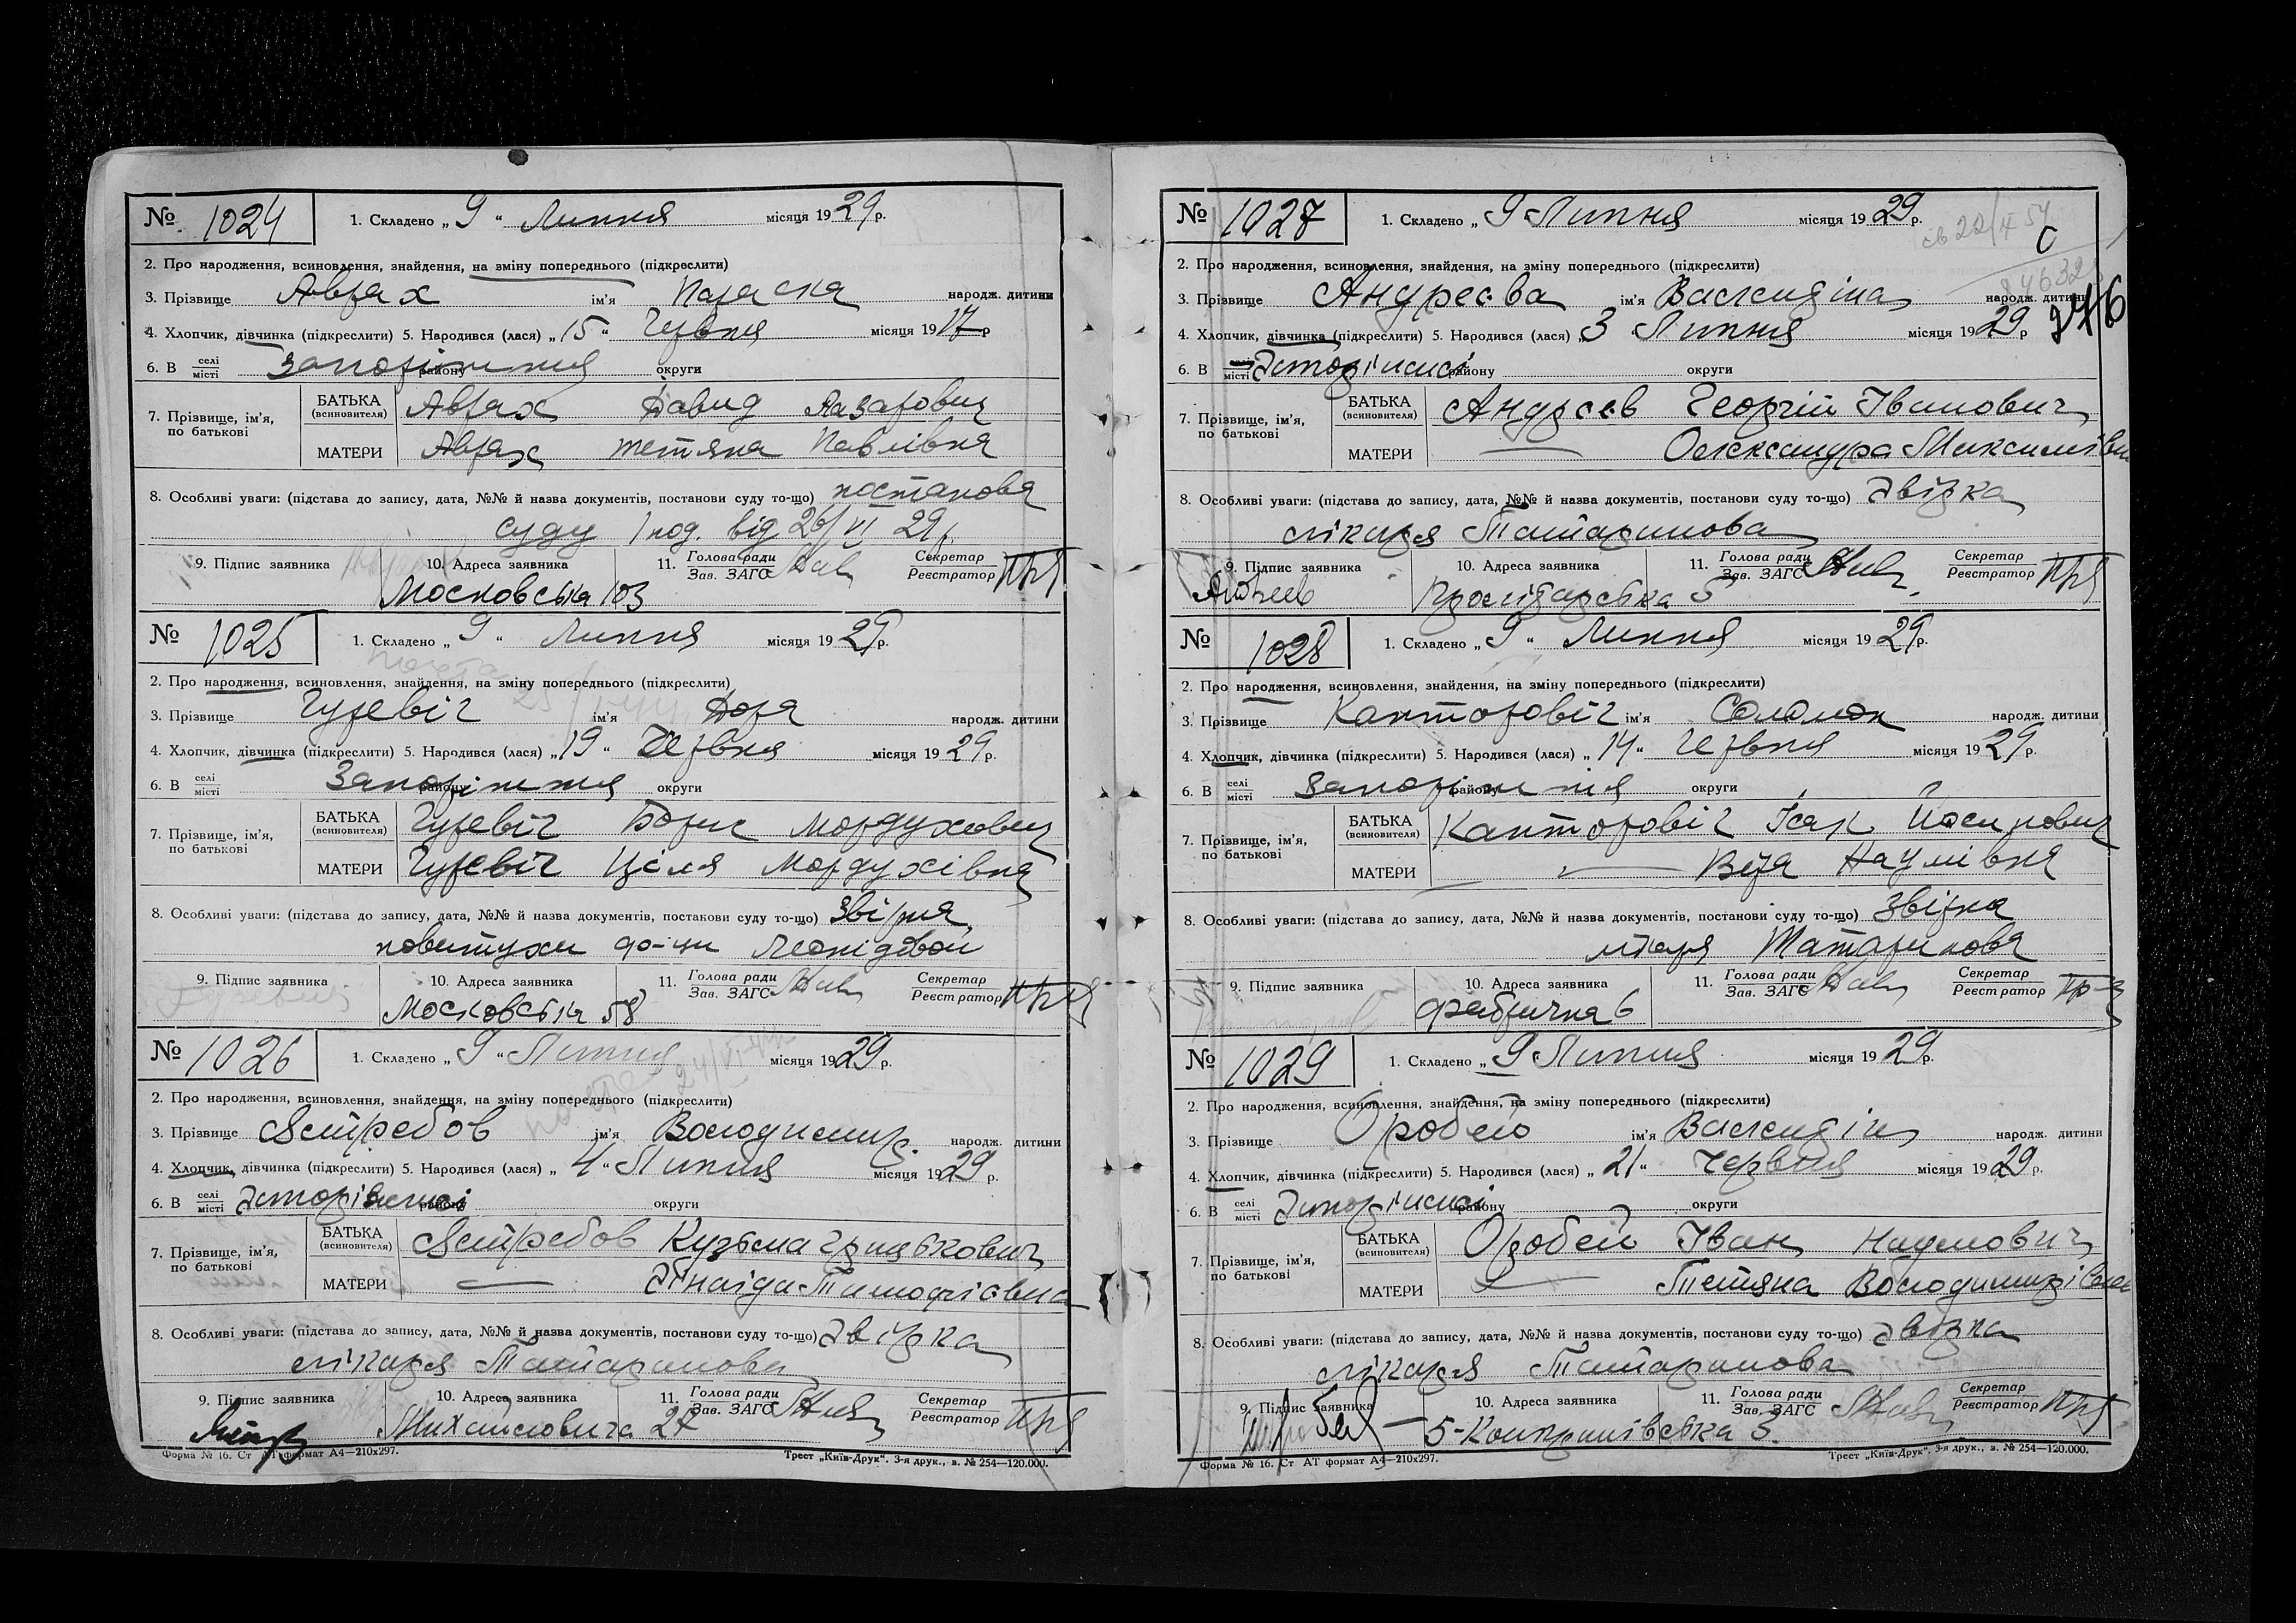 № 1024 1. Складено „ 9 “ Липня місяця 1929 р.
2. Про народження, всиновлення, знайдення, на зміну попереднього (підкреслити)
3. Прізвище Аврах ім'я народж. дитини
4. Хлопчик, дівчинка (підкреслити) 5. Народився (лася) „ 15 “ Червня місяця 1917 р
6. В селі місті Запоріжжя району округи
7. Прізвище, ім'я, по батькові
БАТЬКА (всиновителя) Аврах Давид Лазарович
МАТЕРИ Аврах Тетяна Павлівна
8. Особливі уваги: (підстава до запису, дата, №№ й назва документів, постанови суду то-що) постанова
суду 1 від 26/VI 29 р.
9. Підпис заявника 10. Адреса заявника 11. Голова ради Зав. ЗАГС Секретар Реєстратор
Московська 103
№ 1025 1. Складено „ 9 “ Липня місяця 1929 р.
2. Про народження, всиновлення, знайдення, на зміну попереднього (підкреслити)
3. Прізвище Гуревіч ім'я Дора народж. дитини
4. Хлопчик, дівчинка (підкреслити) 5. Народився (лася) „ 19 “ Червня місяця 1929 р.
6. В селі місті Запоріжжя району округи
7. Прізвище, ім'я, по батькові
БАТЬКА (всиновителя) Гуревіч Борис Мордухович
МАТЕРИ Гуревіч Ціля Мордухівна
8. Особливі уваги: (підстава до запису, дата, №№ й назва документів, постанови суду то-що) Звірка
повитухи Леонідової
9. Підпис заявника 10. Адреса заявника 11. Голова ради Зав. ЗАГС Секретар Реєстратор
Московська 58
№ 1026 1. Складено „ 9 “ Липня місяця 1929 р.
2. Про народження, всиновлення, знайдення, на зміну попереднього (підкреслити)
3. Прізвище Ястребов ім'я Володимир народж. дитини
4. Хлопчик, дівчинка (підкреслити) 5. Народився (лася) „ 4 “ Липня місяця 1929 р.
6. В селі місті Запоріжжі району округи
7. Прізвище, ім'я, по батькові
БАТЬКА (всиновителя) Ястребов Кузьма Грицькович
МАТЕРИ — Зінаїда Тимофієвна
8. Особливі уваги: (підстава до запису, дата, №№ й назва документів, постанови суду то-що) Звірка
лікаря Татаринова
9. Підпис заявника 10. Адреса заявника 11. Голова ради Зав. ЗАГС Секретар Реєстратор
Михайловича
Форма № 16. Ст АТ формат А4—210х297. Трест „Київ-Друк“. 3-я друк., з. № 254—120.000.
№ 1027 1. Складено „ 9 Липня місяця 1929 р.
2. Про народження, всиновлення, знайдення, на зміну попереднього (підкреслити)
3. Прізвище Андреєва ім'я Валендіна народж. дитини
4. Хлопчик, дівчинка (підкреслити) 5. Народився (лася) „ 3 Липня місяця 1929 р
6. В селі місті Запоріжжі району округи
7. Прізвище, ім'я, по батькові
БАТЬКА (всиновителя) Андреєв Георгій Іванович
МАТЕРИ — Олександра Максимівна
8. Особливі уваги: (підстава до запису, дата, №№ й назва документів, постанови суду то-що) Звірка
лікаря Татаринова
9. Підпис заявника 10. Адреса заявника 11. Голова ради Зав. ЗАГС Секретар Реєстратор
Андреев Пролітарська 3
№ 1028 1. Складено „ 9 “ Липня місяця 1929 р.
2. Про народження, всиновлення, знайдення, на зміну попереднього (підкреслити)
3. Прізвище Канторовіч ім'я Соломон народж. дитини
4. Хлопчик, дівчинка (підкреслити) 5. Народився (лася) „ 14 “ Червня місяця 1929 р.
6. В селі місті Запоріжжя району округи
7. Прізвище, ім'я, по батькові
БАТЬКА (всиновителя) Канторовіч Ісак Йосипович
МАТЕРИ — Віра Наумівна
8. Особливі уваги: (підстава до запису, дата, №№ й назва документів, постанови суду то-що) Звірка
лікаря Татаринова
9. Підпис заявника 10. Адреса заявника 11. Голова ради Зав. ЗАГС Секретар Реєстратор
Фабрична 6
№ 1029 1. Складено „ 9 Липня місяця 1929 р.
2. Про народження, всиновлення, знайдення, на зміну попереднього (підкреслити)
3. Прізвище Оробею ім'я Валендін народж. дитини
4. Хлопчик, дівчинка (підкреслити) 5. Народився (лася) „ 21 “ Червня місяця 1929 р.
6. В селі місті Запоріжжі району округи
7. Прізвище, ім'я, по батькові
БАТЬКА (всиновителя) Оробей Іван Наумович
МАТЕРИ — Тетяна Володимирівна
8. Особливі уваги: (підстава до запису, дата, №№ й назва документів, постанови суду то-що) Звірка
лікаря Татаринова
9. Підпис заявника 10. Адреса заявника 11. Голова ради Зав. ЗАГС Секретар Реєстратор
Форма № 16. Ст АТ формат А4—210х297. Трест „Київ-Друк“. 3-я друк., з. № 254—120.000.